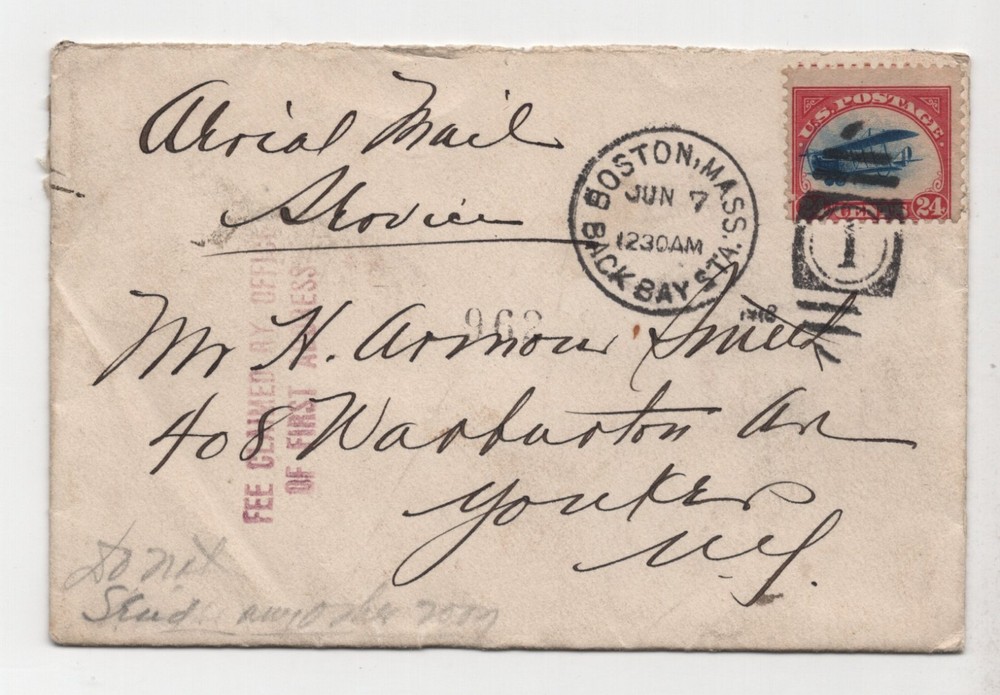 Aerial Mail
Service
U.S. POSTAGE
CENTS 24
BOSTON, MASS.
JUN 7
1230AM
BACK BAY STA.
1
1918
962
FEE CLAIMED BY OFFICE
OF FIRST ADDRESS
Mr H. Armour Smith
408 Warburton Av
Yonkers
N.Y.
Do not
Send any other way